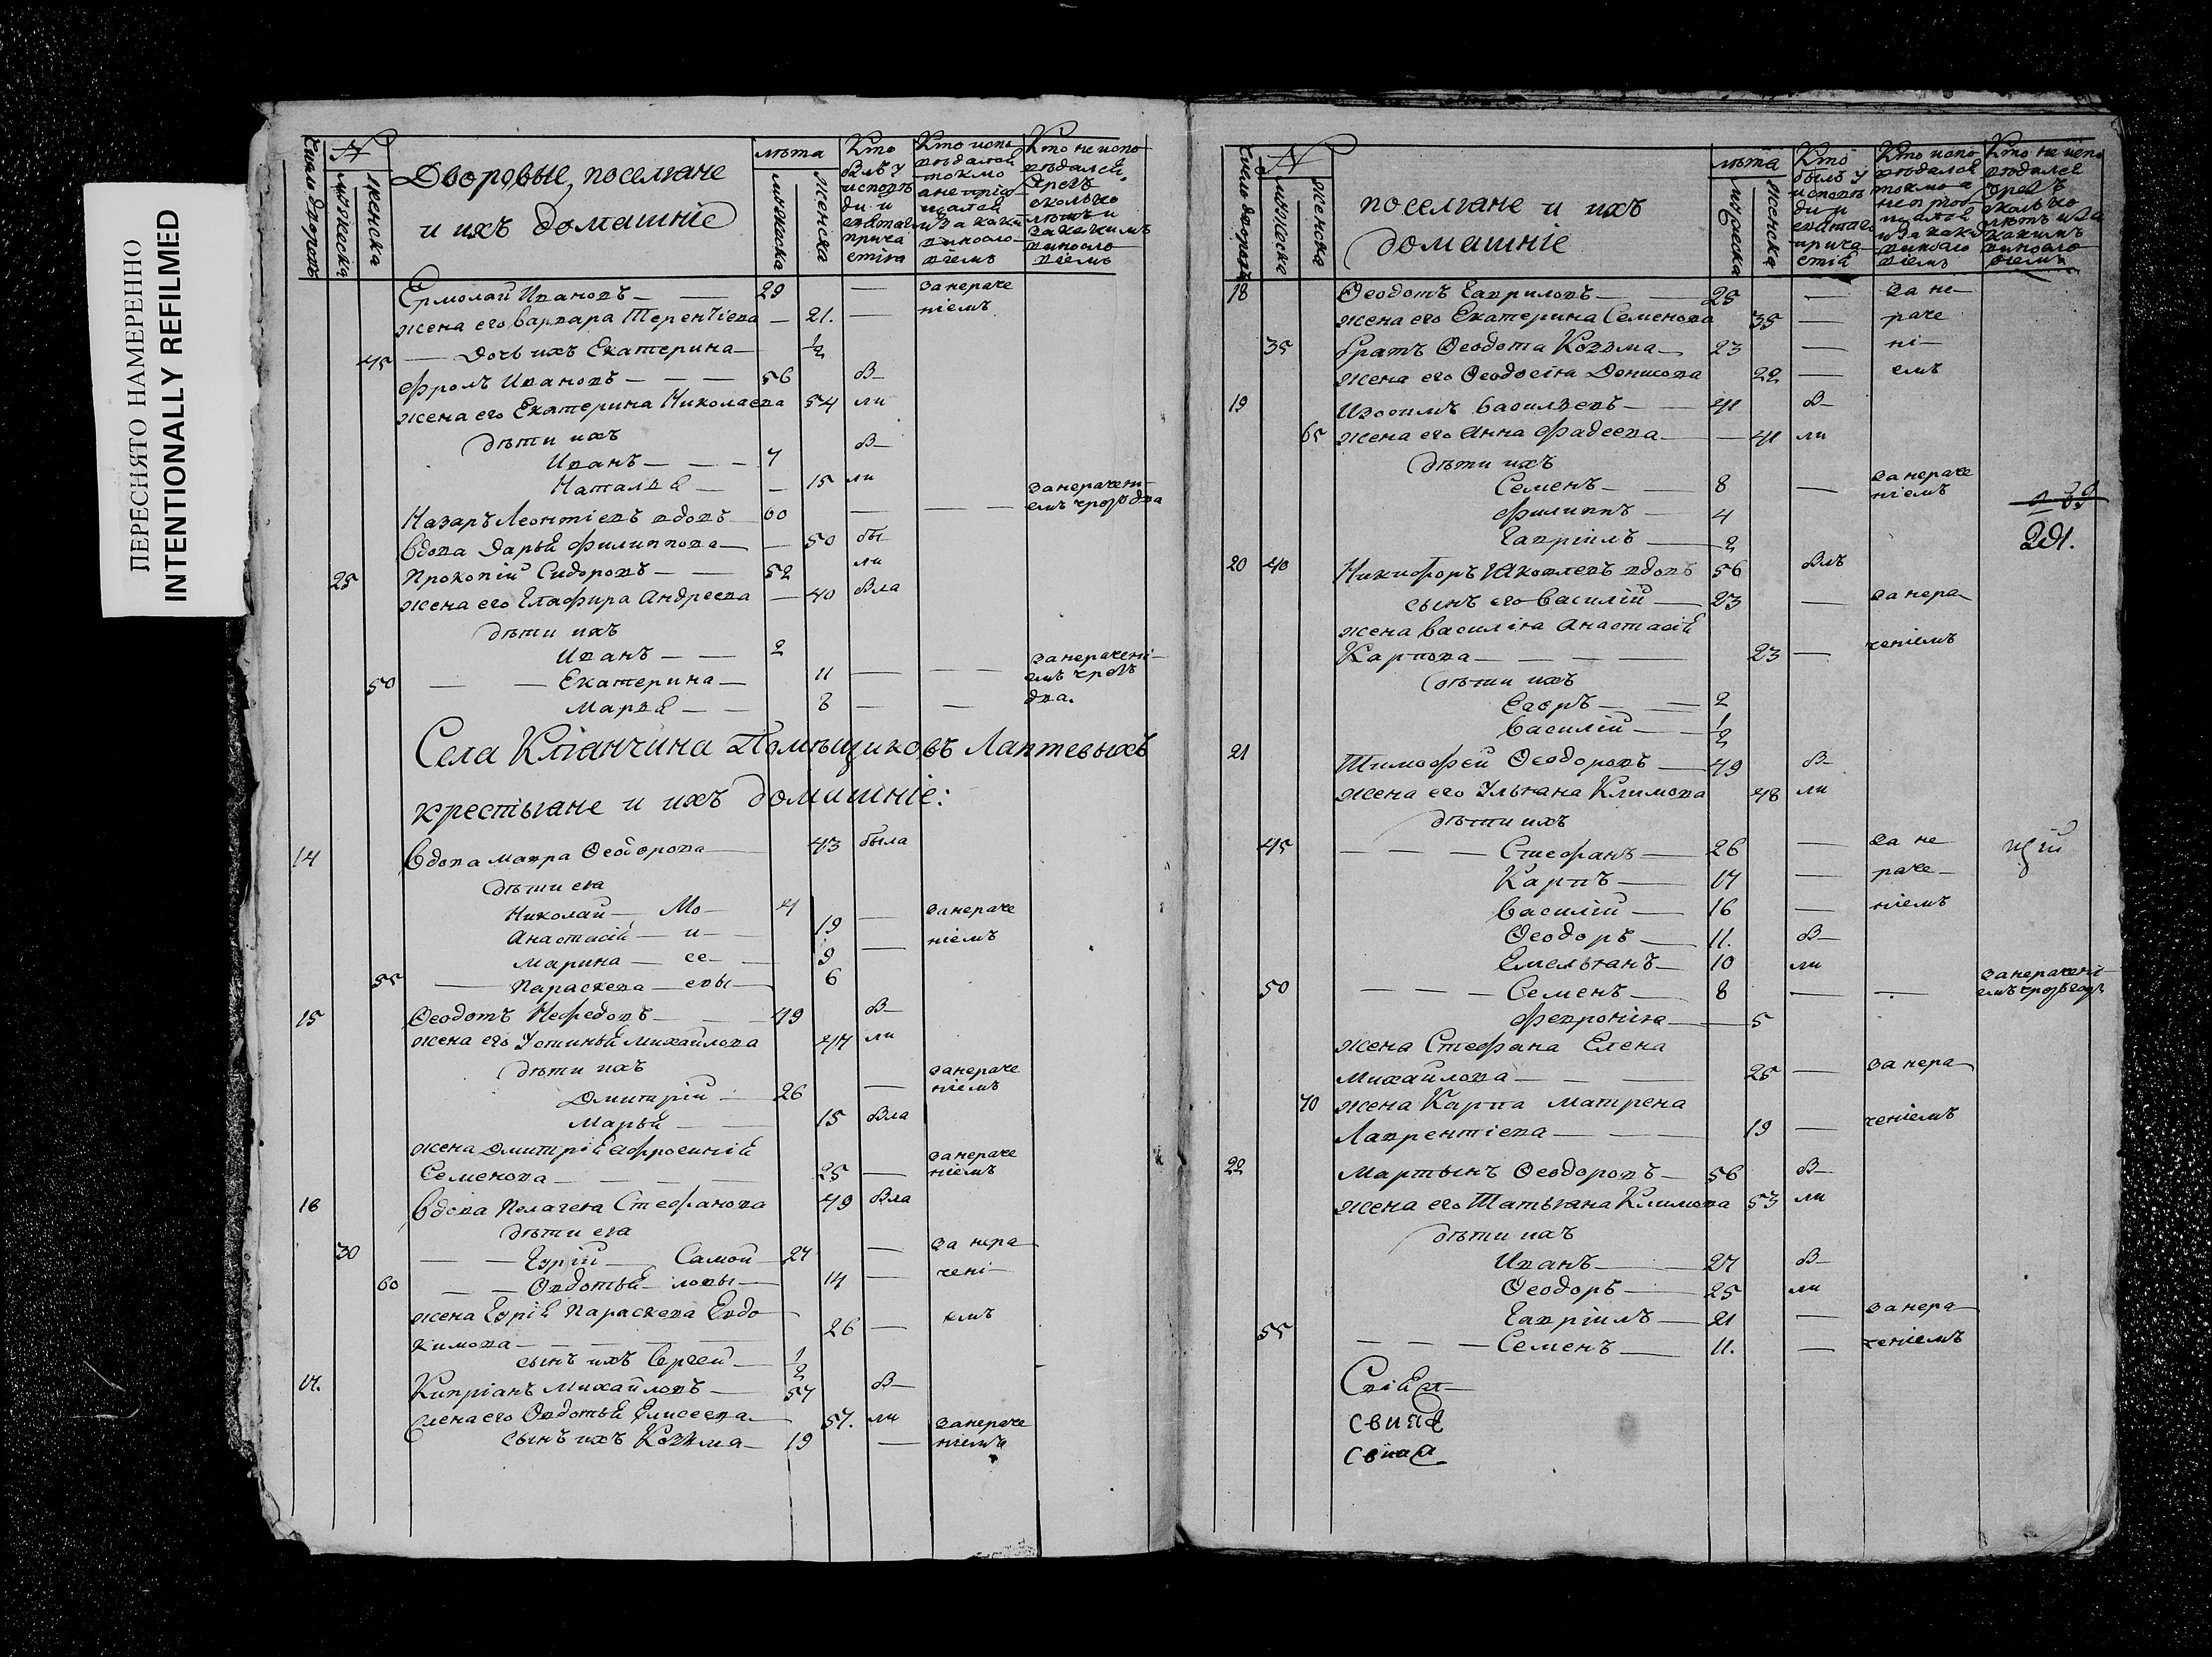 ПЕРЕСНЯТО НАМЕРЕННО
INTENTIONALLY REFILMED
Число дворовъ
№
мужеска
женска
Дворовые, поселяне
и ихъ домашніе
лѣта
мужеска
женска
Кто былъ у исповѣди и святаго причастія
Кто исповѣдался токмо а не причастился и за какимъ винословіемъ
Кто не исповѣдался чрезъ сколько лѣтъ и за какимъ винословіемъ
Ермолай Ивановъ — 29 — за нераче
жена его Варвара Терентіева — 21. — ніемъ
45 — Дочь ихъ Екатерина — ½
Фролъ Ивановъ — 56 В—
жена его Екатерина Николаева 54 ли
дѣти ихъ
Иванъ — 7 В—
Наталья — 15 ли
Назаръ Леонтіевъ вдовъ 60 — за нерачені емъ чрезъ два
Вдова Дарья Филиппова — 50 бы
25 Прокопій Сидоровъ — 52 ли
жена его Глафира Андреева — 40 Вла
дѣти ихъ
Иванъ — 2
50 — Екатерина — 11 — за нерачені емъ чрезъ
Марья — 8 — два.
Села Кліанчина Помѣщиковъ Лаптевыхъ
крестьяне и ихъ домашніе:
14 Вдова Мавра Ѳеодорова 43 была
дѣти ея
Николай — Мо — 4
Анастасія — и — 19 — за нераче
Марина — се — 9 — ніемъ
55 — Параскева — евы — 6
15 Ѳеодотъ Нефедовъ — 49 В—
жена его Устинья Михайлова 44 ли
дѣти ихъ
Дмитрій — 26 — за нераче ніемъ
Марья — 15 Вла
жена Дмитрія Афросинія
Семенова — 25 — за нераче ніемъ
16 Вдова Пелагея Стефанова 49 Вла
дѣти ея
30 — Гурій — Самой 24 — за нера
60 — Овдотья — ловы — 14 — чені
жена Гурія Параскева Евдо
кимова — 26 — емъ
сынъ ихъ Сергей — ½
17. Кипріанъ Михайловъ — 57 В—
жена его Овдотья Елисеева — 57. ли
сынъ ихъ Козьма — 19 — за нераче ніемъ
Число дворовъ
№
мужеска
женска
поселяне и ихъ
домашніе
лѣта
мужеска
женска
Кто былъ у исповѣди и святаго причастія
Кто исповѣдался токмо а не причастился и за какимъ винословіемъ
Кто не исповѣдался чрезъ сколько лѣтъ и за какимъ винословіемъ
18 Ѳеодотъ Гавриловъ — 25 — за не—
жена его Екатерина Семенова 35 — раче
35 братъ Ѳеодота Козьма — 23 — ні—
жена его Ѳеодосія Денисова 22 — емъ
19 Изосимъ Васильевъ — 41 В—
65 жена его Анна Фадеева — 41 ли
дѣти ихъ
Семенъ — 8 — за нераче ніемъ
Филиппъ — 4
Гавріилъ — 2
201.
20 40 Никифоръ Яковлевъ вдовъ 56 Влъ
сынъ его Василій — 23 — за нера—
жена Василія Анастасія
Карпова — 23 — ченіемъ
дѣти ихъ
Егоръ — 2
Василій — ½
21 Тимофей Ѳеодоровъ — 49 В—
жена его Ульяна Климова 48 ли
дѣти ихъ
45 — Стефанъ — 26 — за не
Карпъ — 17 — раче—
Василій — 16 — ніемъ
Ѳеодоръ — 11. В—
Емельянъ — 10 ли
50 — Семенъ — 8 — за нерачені емъ чрезъ годъ
Февронія — 5
жена Стефана Елена
Михайлова — 25 — за нера
70 жена Карпа Матрена
Лаврентіева — 19 — ченіемъ
22 Мартынъ Ѳеодоровъ — 56 В—
жена его Татьяна Климова 53 ли
дѣти ихъ
Иванъ — 27 В—
Ѳеодоръ — 25 ли
Гавріилъ — 21 — за нера—
55 — Семенъ — 11. — ченіемъ